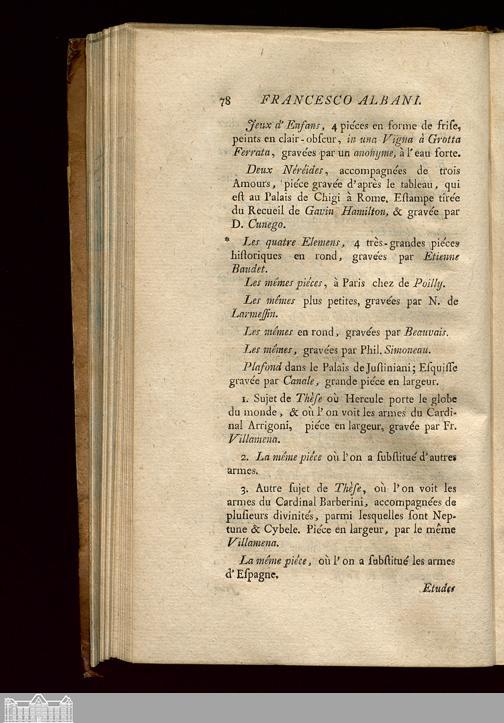 78 FRANCESCO ALBANI.
Jeux d' Enfans, 4 piéces en forme de frise,
peints en clair-obscur, in una Vigna à Grotta
Ferrata, gravées par un anonyme, à l'eau forte.
Deux Néréides, accompagnées de trois
Amours, piéce gravée d'après le tableau, qui
est au Palais de Chigi à Rome. Estampe tirée
du Recueil de Gavin Hamilton, & gravée par
D. Cunego.
* Les quatre Elemens, 4 très-grandes piéces
historiques en rond, gravées par Etienne
Baudet.
Les mêmes piéces, à Paris chez de Poilly.
Les mêmes plus petites, gravées par N. de
Larmessin.
Les mêmes en rond, gravées par Beauvais.
Les mêmes, gravées par Phil. Simoneau.
Plafond dans le Palais de Justiniani; Esquisse
gravée par Canale, grande piéce en largeur.
1. Sujet de Thèse où Hercule porte le globe
du monde, & où l'on voit les armes du Cardi-
nal Arrigoni, piéce en largeur, gravée par Fr.
Villamena.
2. La même piéce où l'on a substitué d'autres
armes.
3. Autre sujet de Thèse, où l'on voit les
armes du Cardinal Barberini, accompagnées de
plusieurs divinités, parmi lesquelles sont Nep-
tune & Cybele. Piéce en largeur, par le même
Villamena.
La même piéce, où l'on a substitué les armes
d'Espagne.
Etudes